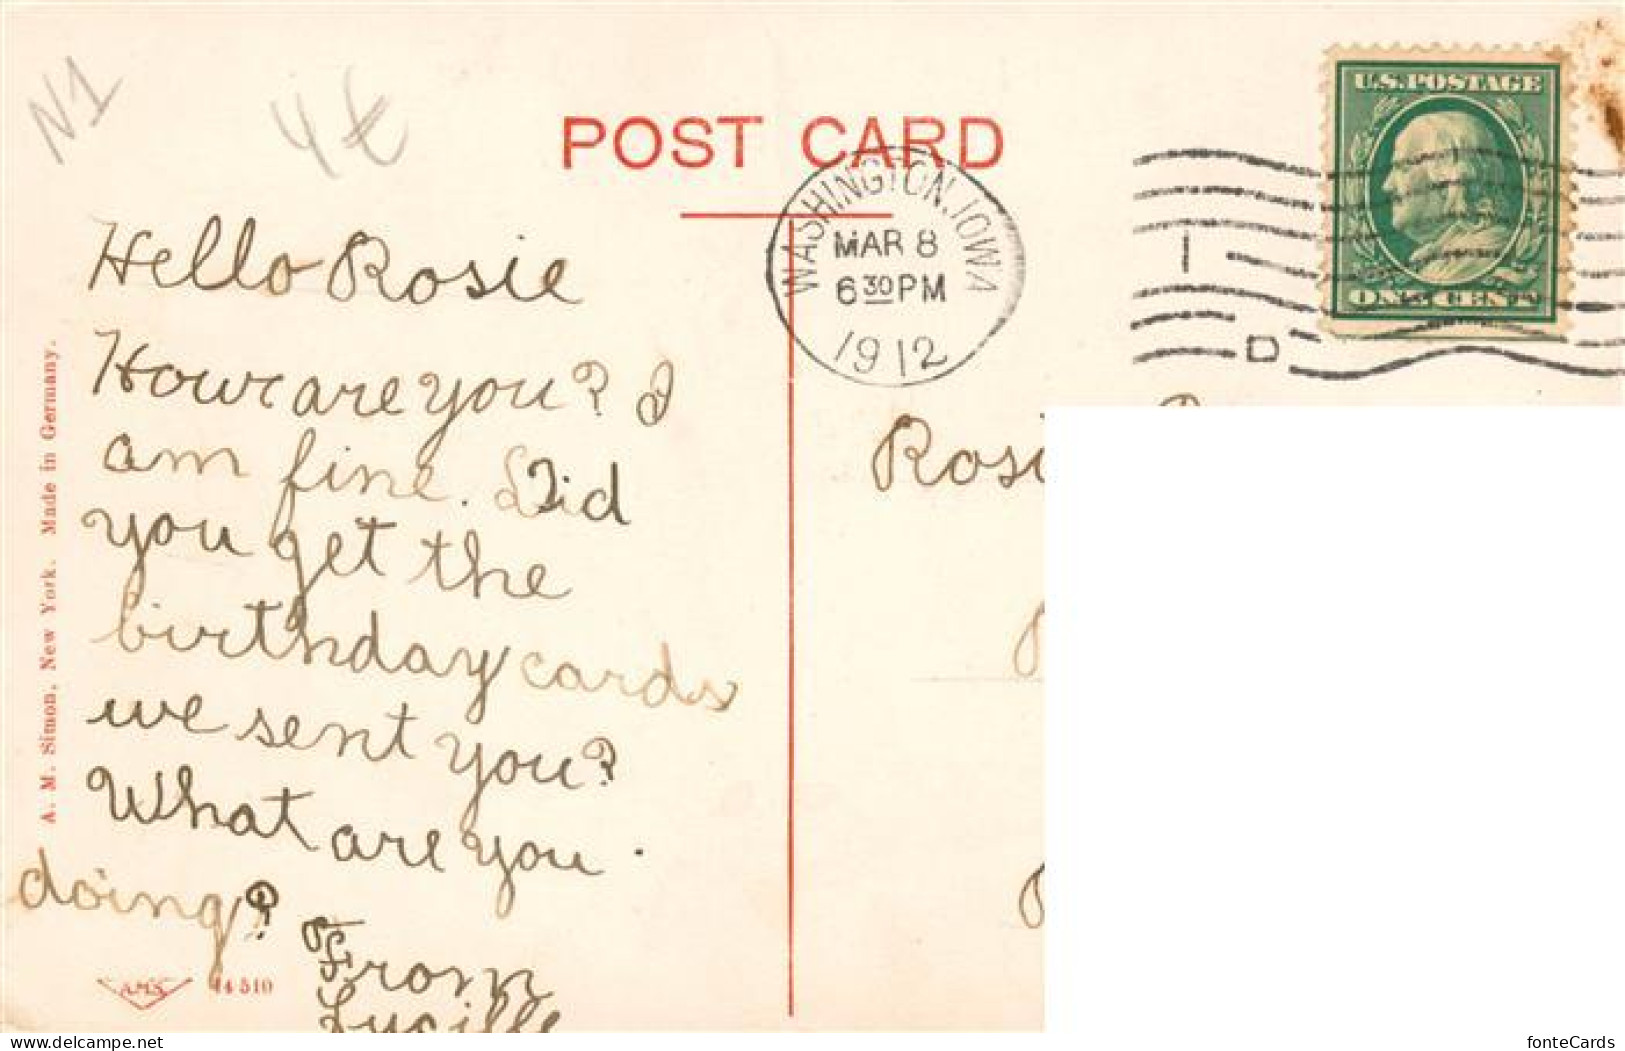 N1
4€
POST CARD
WASHINGTON, IOWA
MAR 8
6 30 PM
1912
1
D
U.S. POSTAGE
ONE CENT
Hello Rosie
How are you? I
am fine. Did
you get the
birthday cards
we sent you?
What are you
doing?
From
Lucille
Rosi
A. M. Simon, New York. Made in Germany.
A.M.S.
14510
delcampe.net
fonteCards